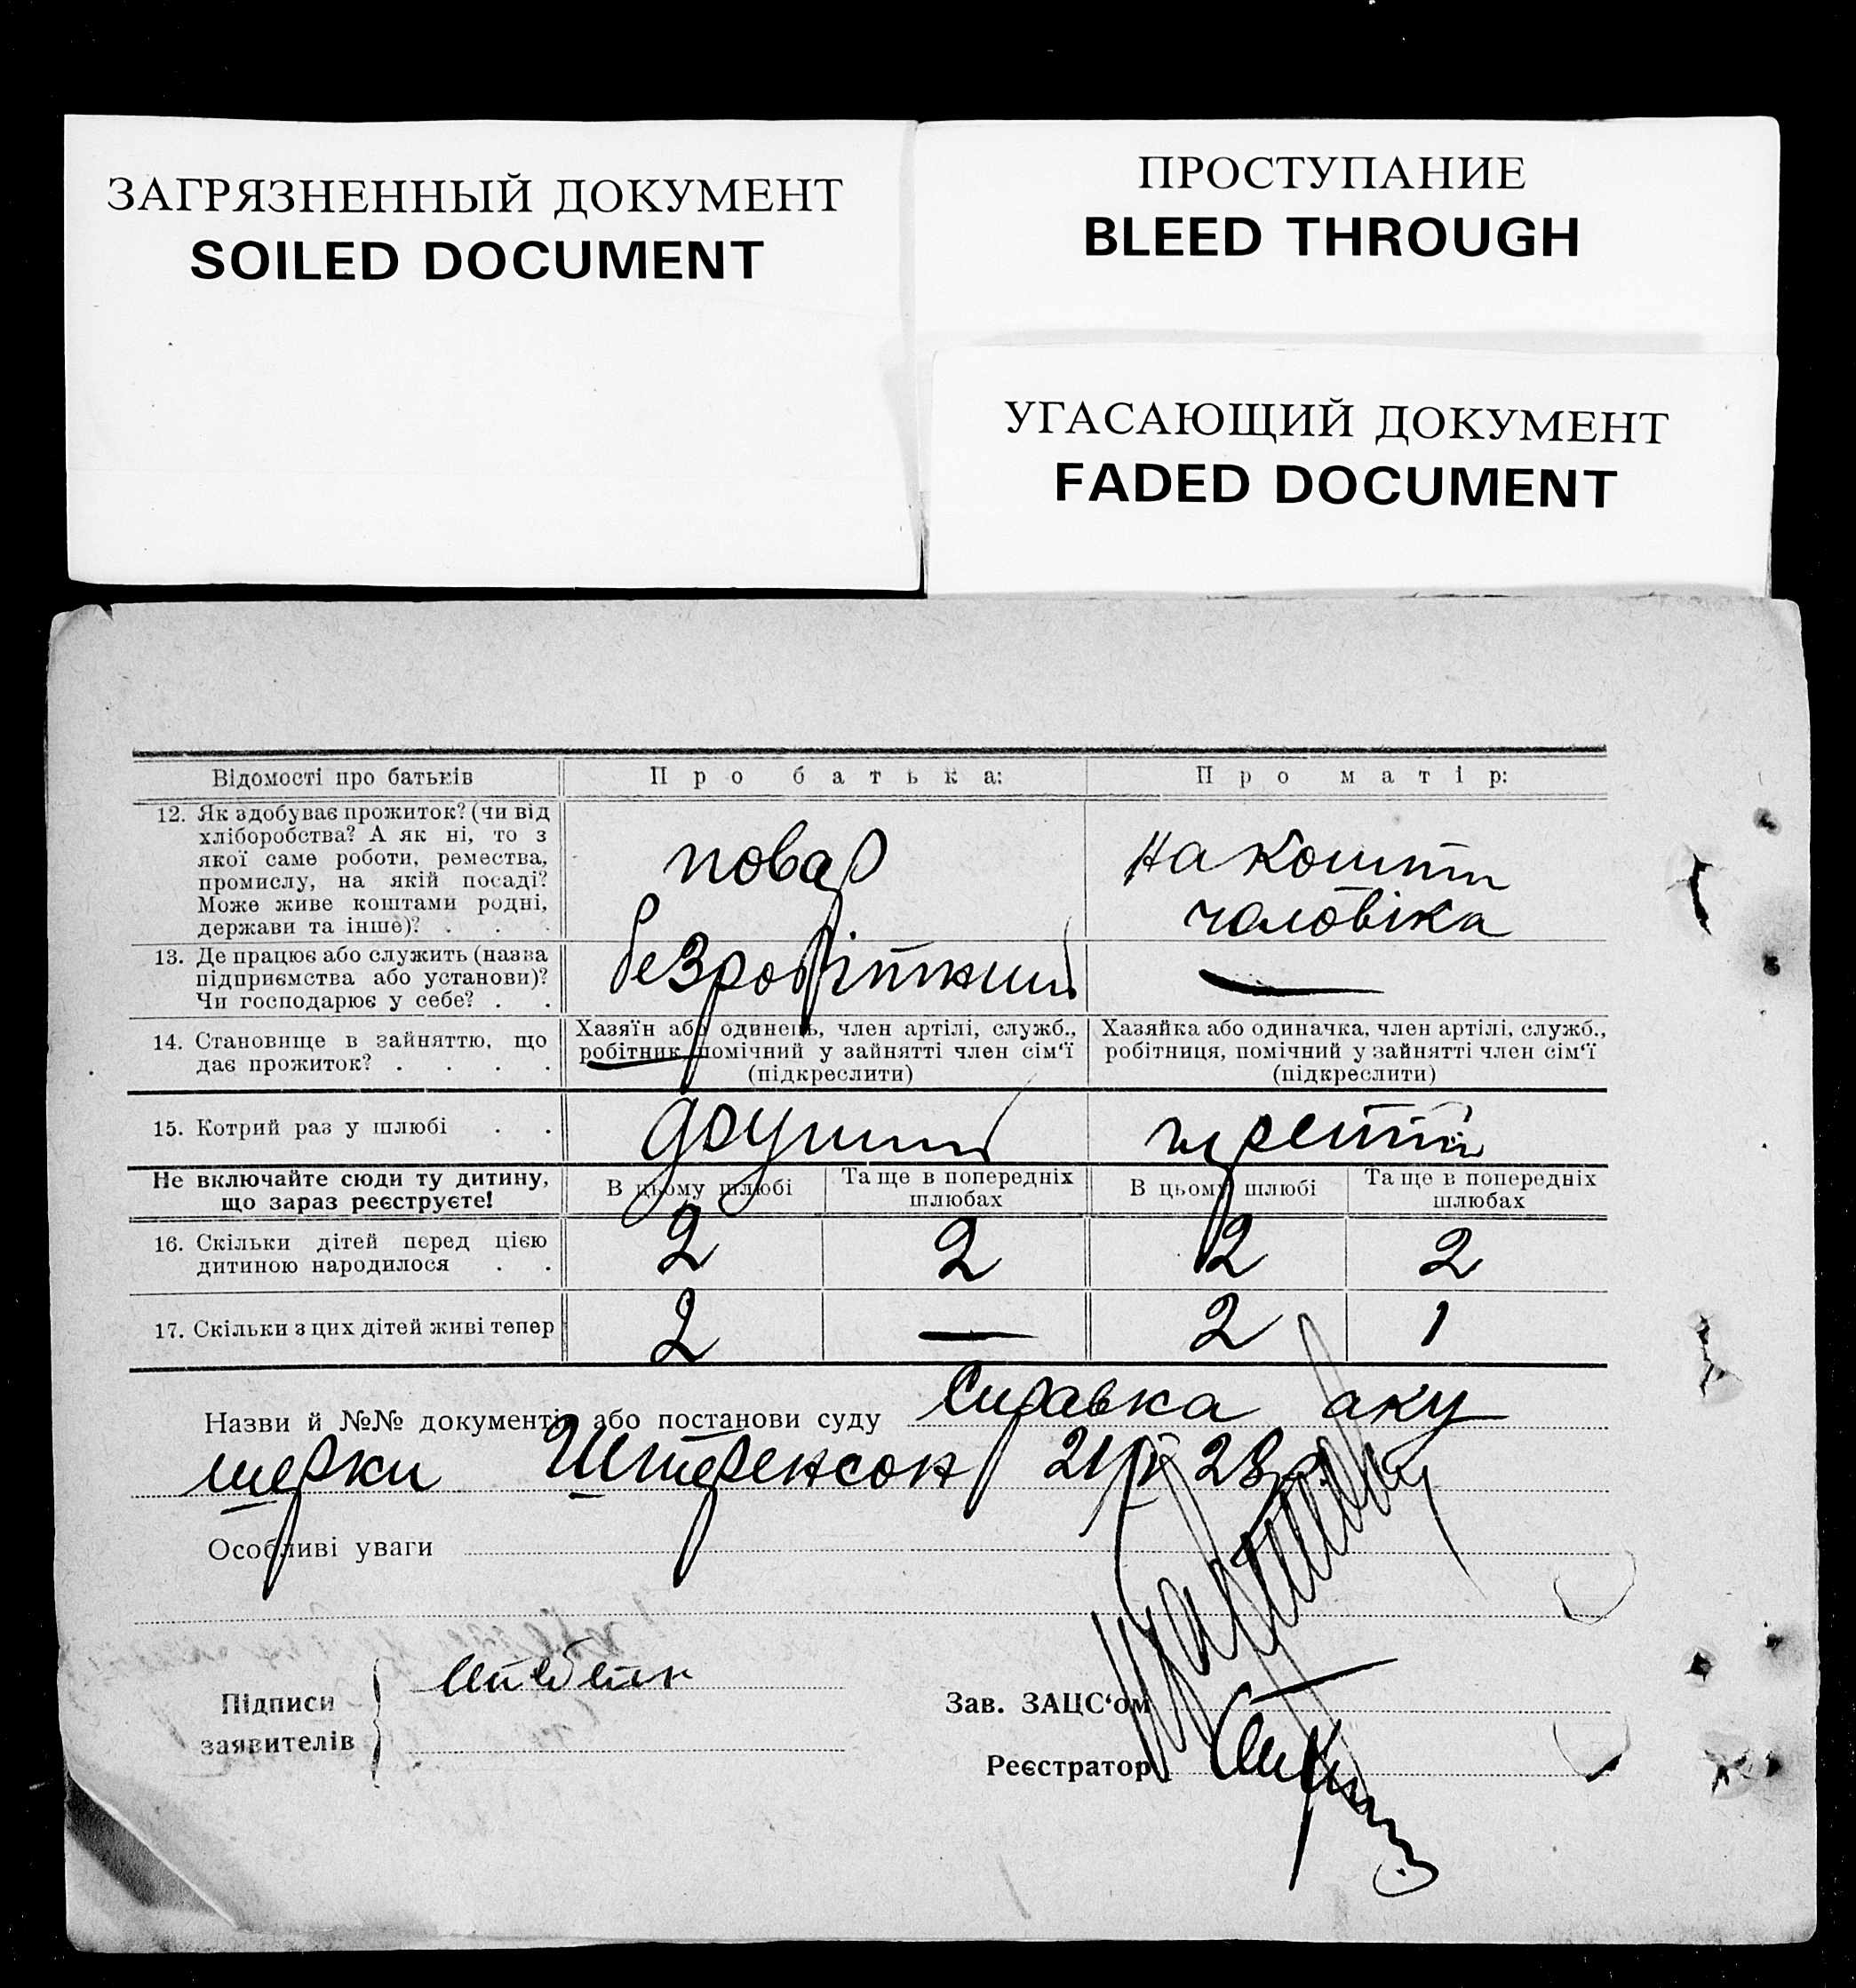 ЗАГРЯЗНЕННЫЙ ДОКУМЕНТ
SOILED DOCUMENT
ПРОСТУПАНИЕ
BLEED THROUGH
УГАСАЮЩИЙ ДОКУМЕНТ
FADED DOCUMENT
Відомості про батьків
Про батька:
Про матір:
12. Як здобуває прожиток? (чи від
хліборобства? А як ні, то з
якої саме роботи, ремества,
промислу, на якій посаді?
Може живе коштами родні,
держави та інше)? . . .
повар
на кошти
чоловіка
13. Де працює або служить (назва
підприємства або установи)?
Чи господарює у себе? . .
безробітний
—
14. Становище в зайняттю, що
дає прожиток? . . . .
Хазяїн або одинець, член артілі, служб.,
робітник, помічний у зайнятті член сім‘ї
(підкреслити)
Хазяйка або одиначка, член артілі, служб.,
робітниця, помічний у зайнятті член сім‘ї
(підкреслити)
15. Котрий раз у шлюбі . .
другий
третій
Не включайте сюди ту дитину,
що зараз реєструєте!
В цьому шлюбі
Та ще в попередніх
шлюбах
В цьому шлюбі
Та ще в попередніх
шлюбах
16. Скільки дітей перед цією
дитиною народилося . .
2 2 2 2
17. Скільки з цих дітей живі тепер
2 — 2 1
Назви й №№ документів або постанови суду Справка аку
шерки Штеренсон 28
Особливі уваги
Підписи
заявителів
Зав. ЗАЦС‘ом
Реєстратор